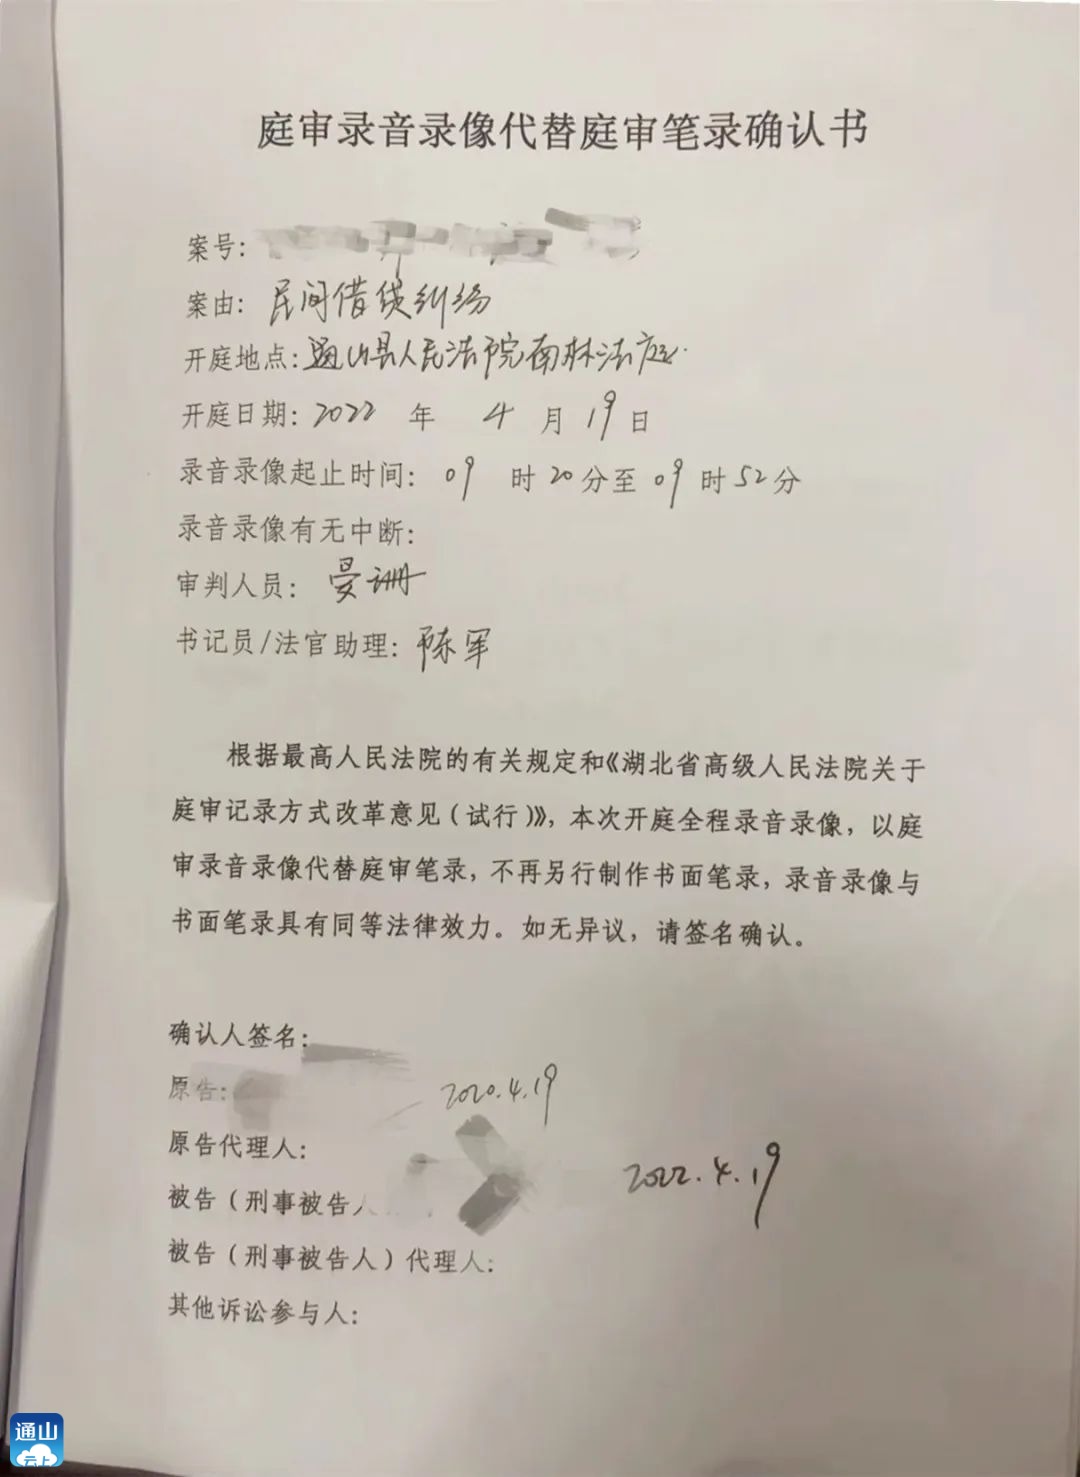 庭审录音录像代替庭审笔录确认书
案号:
案由: 民间借贷纠纷
开庭地点: 通山县人民法院南林法庭.
开庭日期: 2022 年 4 月 19 日
录音录像起止时间: 09 时 20 分至 09 时 52 分
录音录像有无中断:
审判人员: 晏珊
书记员/法官助理: 陈军
根据最高人民法院的有关规定和《湖北省高级人民法院关于
庭审记录方式改革意见(试行)》, 本次开庭全程录音录像, 以庭
审录音录像代替庭审笔录, 不再另行制作书面笔录, 录音录像与
书面笔录具有同等法律效力。如无异议, 请签名确认。
确认人签名:
原告: 2020.4.19
原告代理人:
被告(刑事被告人 2022.4.19
被告(刑事被告人)代理人:
其他诉讼参与人:
通山
云上